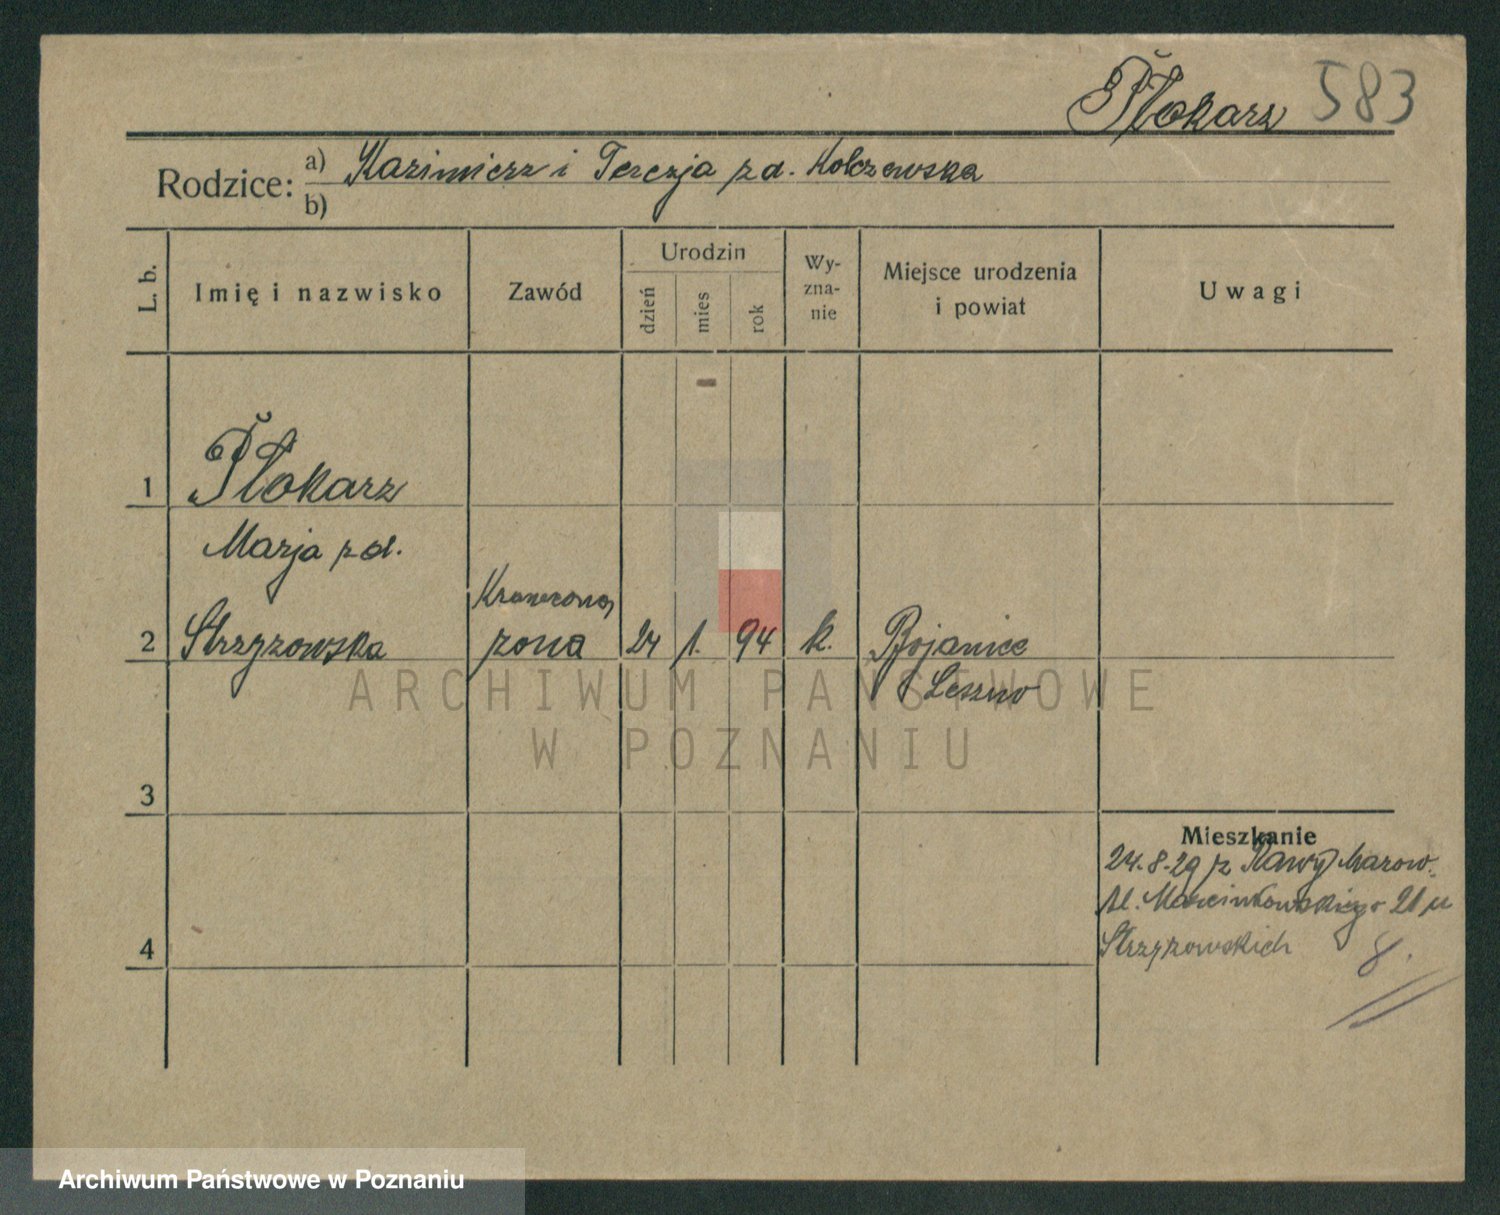 Płokarz 583
Rodzice: a) Kazimierz i Terezja z d. Kolczewska
b)
L. b.
Imię i nazwisko
Zawód
Urodzin
dzień
mies
rok
Wy-
zna-
nie
Miejsce urodzenia
i powiat
Uwagi
1 Płokarz
Marja z d.
2 Strzyzowska
żona 24 1. 94 k. Bojanice
Leszno
3
Mieszkanie
24.8.29 z Rawy Mazow.
Al. Marcinkowskiego 21 u
Strzyzowskich 8.
4
ARCHIWUM PAŃSTWOWE
W POZNANIU
Archiwum Państwowe w Poznaniu